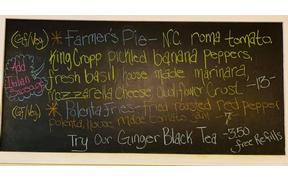 (GF/Veg) * Farmer's Pie - N.C. roma tomato,
King Cropp pickled banana peppers,
fresh basil house made marinara,
mozzarella cheese cauliflower crust -13-
Add
Italian
Sausage
(GF/Veg) * Polenta fries - fried roasted red pepper
polenta, house made tomato jam - 7
Try Our Ginger Black Tea - 3.50
free Refills